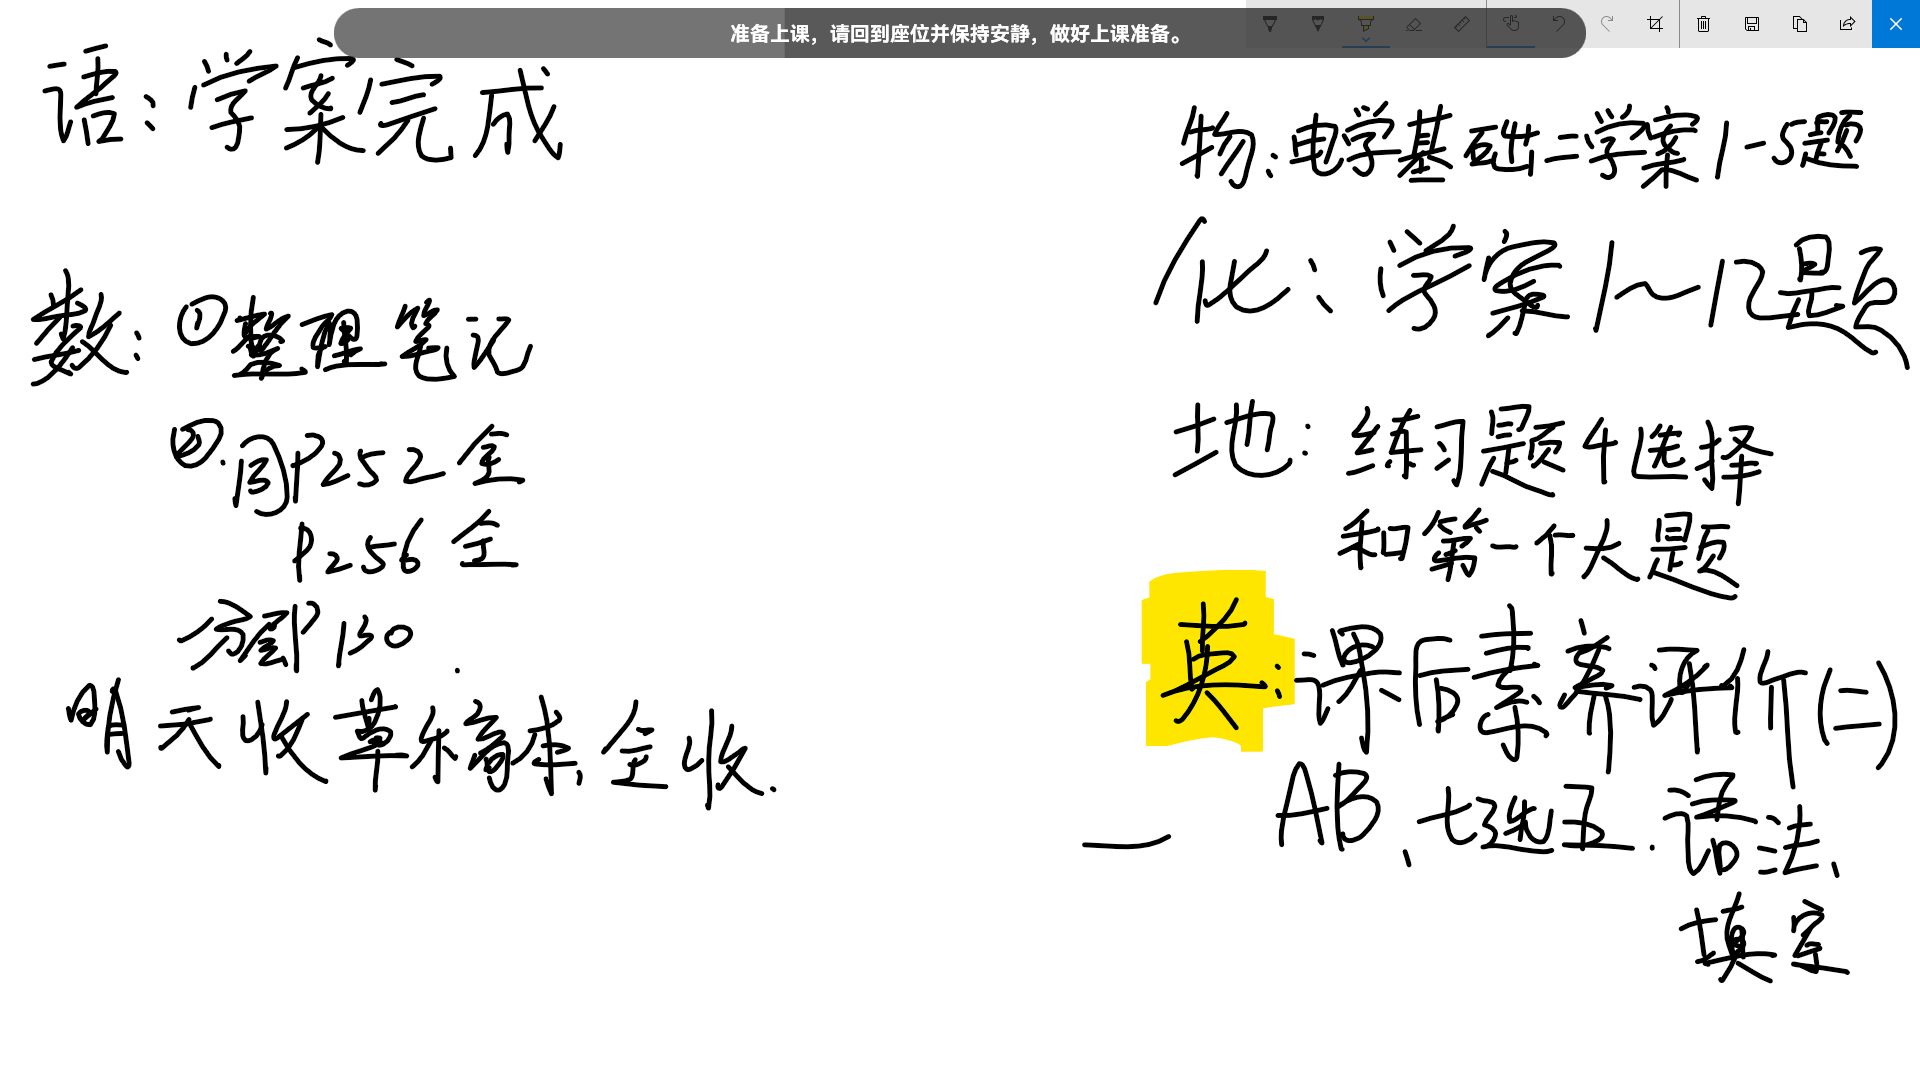 准备上课，请回到座位并保持安静，做好上课准备。
语：学案完成
数：①整理笔记
②.同P252全
P256全
分层P130.
明天收草稿本、全收.
物：电学基础二学案1-5题
化：学案1～12题
地：练习题4选择
和第一个大题
英：课后素养评价(二)
AB、七选五.语法、
填空